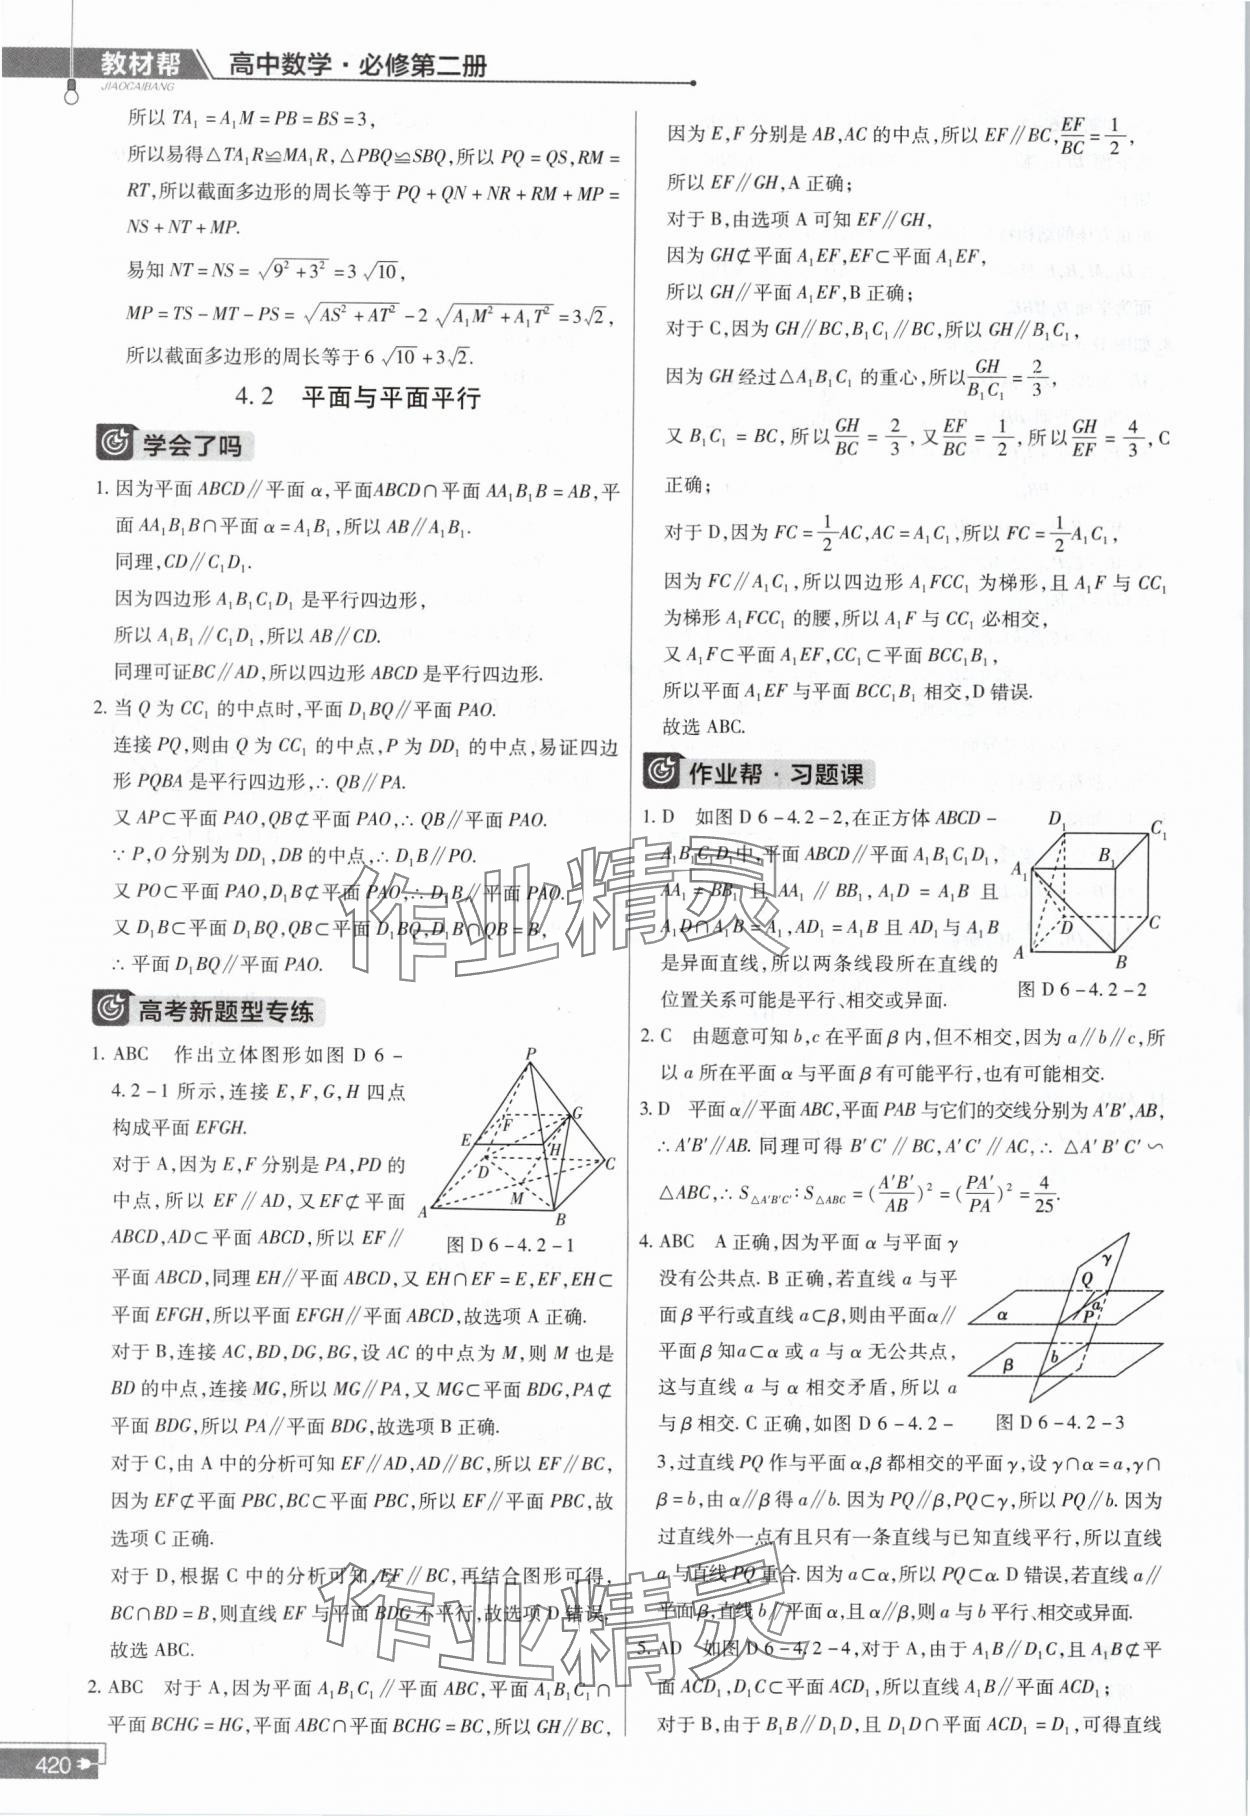 教材帮
JIAOCAIBANG
高中数学·必修第二册
所以 TA₁=A₁M=PB=BS=3,
所以易得△TA₁R≌MA₁R,△PBQ≌SBQ,所以 PQ=QS,RM=
RT,所以截面多边形的周长等于 PQ+QN+NR+RM+MP=
NS+NT+MP.
易知 NT=NS=√(9²+3²)=3√10,
MP=TS-MT-PS=√(AS²+AT²)-2√(A₁M²+A₁T²)=3√2,
所以截面多边形的周长等于 6√10+3√2.
4.2 平面与平面平行
学会了吗
1. 因为平面 ABCD∥平面 α,平面ABCD∩平面 AA₁B₁B=AB,平
面 AA₁B₁B∩平面 α=A₁B₁,所以 AB∥A₁B₁.
同理,CD∥C₁D₁.
因为四边形 A₁B₁C₁D₁ 是平行四边形,
所以 A₁B₁∥C₁D₁,所以 AB∥CD.
同理可证BC∥AD,所以四边形 ABCD 是平行四边形.
2. 当 Q 为 CC₁ 的中点时,平面 D₁BQ∥平面 PAO.
连接 PQ,则由 Q 为 CC₁ 的中点,P 为 DD₁ 的中点,易证四边
形 PQBA 是平行四边形,∴ QB∥PA.
又 AP⊂平面 PAO,QB⊄平面 PAO,∴ QB∥平面 PAO.
∵ P,O 分别为 DD₁,DB 的中点,∴ D₁B∥PO.
又 PO⊂平面 PAO,D₁B⊄平面 PAO,∴ D₁B∥平面 PAO.
又 D₁B⊂平面 D₁BQ,QB⊂平面 D₁BQ,D₁B∩QB=B,
∴ 平面 D₁BQ∥平面 PAO.
高考新题型专练
1. ABC 作出立体图形如图 D 6-
4.2-1 所示,连接 E,F,G,H 四点
构成平面 EFGH.
对于 A,因为 E,F 分别是 PA,PD 的
中点,所以 EF∥AD,又 EF⊄平面
ABCD,AD⊂平面 ABCD,所以 EF∥
P
F
G
E
H
D
C
M
A
B
图 D 6-4.2-1
平面 ABCD,同理 EH∥平面 ABCD,又 EH∩EF=E,EF,EH⊂
平面 EFGH,所以平面 EFGH∥平面 ABCD,故选项 A 正确.
对于 B,连接 AC,BD,DG,BG,设 AC 的中点为 M,则 M 也是
BD 的中点,连接 MG,所以 MG∥PA,又 MG⊂平面 BDG,PA⊄
平面 BDG,所以 PA∥平面 BDG,故选项 B 正确.
对于 C,由 A 中的分析可知 EF∥AD,AD∥BC,所以 EF∥BC,
因为 EF⊄平面 PBC,BC⊂平面 PBC,所以 EF∥平面 PBC,故
选项 C 正确.
对于 D,根据 C 中的分析可知,EF∥BC,再结合图形可得,
BC∩BD=B,则直线 EF 与平面 BDG 不平行,故选项 D 错误,
故选 ABC.
2. ABC 对于 A,因为平面 A₁B₁C₁∥平面 ABC,平面 A₁B₁C₁∩
平面 BCHG=HG,平面 ABC∩平面 BCHG=BC,所以 GH∥BC,
因为 E,F 分别是 AB,AC 的中点,所以 EF∥BC,EF/BC=1/2,
所以 EF∥GH,A 正确;
对于 B,由选项 A 可知 EF∥GH,
因为 GH⊄平面 A₁EF,EF⊂平面 A₁EF,
所以 GH∥平面 A₁EF,B 正确;
对于 C,因为 GH∥BC,B₁C₁∥BC,所以 GH∥B₁C₁,
因为 GH 经过△A₁B₁C₁ 的重心,所以GH/B₁C₁=2/3,
又 B₁C₁=BC,所以GH/BC=2/3,又EF/BC=1/2,所以GH/EF=4/3,C
正确;
对于 D,因为 FC=1/2AC,AC=A₁C₁,所以 FC=1/2A₁C₁,
因为 FC∥A₁C₁,所以四边形 A₁FCC₁ 为梯形,且 A₁F 与 CC₁
为梯形 A₁FCC₁ 的腰,所以 A₁F 与 CC₁ 必相交,
又 A₁F⊂平面 A₁EF,CC₁⊂平面 BCC₁B₁,
所以平面 A₁EF 与平面 BCC₁B₁ 相交,D 错误.
故选 ABC.
作业帮·习题课
1. D 如图 D 6-4.2-2,在正方体 ABCD-
A₁B₁C₁D₁中,平面 ABCD∥平面 A₁B₁C₁D₁,
AA₁=BB₁ 且 AA₁∥BB₁,A₁D=A₁B 且
A₁D∩A₁B=A₁,AD₁=A₁B 且 AD₁与 A₁B
是异面直线,所以两条线段所在直线的
位置关系可能是平行、相交或异面.
D₁
C₁
A₁
B₁
D
C
A
B
图 D 6-4.2-2
2. C 由题意可知 b,c 在平面 β 内,但不相交,因为 a∥b∥c,所
以 a 所在平面 α 与平面 β 有可能平行,也有可能相交.
3. D 平面 α∥平面 ABC,平面 PAB 与它们的交线分别为 A′B′,AB,
∴ A′B′∥AB. 同理可得 B′C′∥BC,A′C′∥AC,∴ △A′B′C′∽
△ABC,∴ S△A′B′C′∶S△ABC=(A′B′/AB)²=(PA′/PA)²=4/25.
4. ABC A 正确,因为平面 α 与平面 γ
没有公共点. B 正确,若直线 a 与平
面 β 平行或直线 a⊂β,则由平面α∥
平面 β 知a⊂α 或 a 与 α 无公共点,
这与直线 a 与 α 相交矛盾,所以 a
与 β 相交. C 正确,如图 D 6-4.2-
γ
Q
a
α
P
β
b
图 D 6-4.2-3
3,过直线 PQ 作与平面 α,β 都相交的平面 γ,设 γ∩α=a,γ∩
β=b,由 α∥β 得 a∥b. 因为 PQ∥β,PQ⊂γ,所以 PQ∥b. 因为
过直线外一点有且只有一条直线与已知直线平行,所以直线
a 与直线 PQ 重合. 因为 a⊂α,所以 PQ⊂α. D 错误,若直线 a∥
平面 β,直线 b∥平面 α,且 α∥β,则 a 与 b 平行、相交或异面.
5. AD 如图 D 6-4.2-4,对于 A,由于 A₁B∥D₁C,且 A₁B⊄平
面 ACD₁,D₁C⊂平面 ACD₁,所以直线 A₁B∥平面 ACD₁;
对于 B,由于 B₁B∥D₁D,且 D₁D∩平面 ACD₁=D₁,可得直线
420
作业精灵
作业精灵